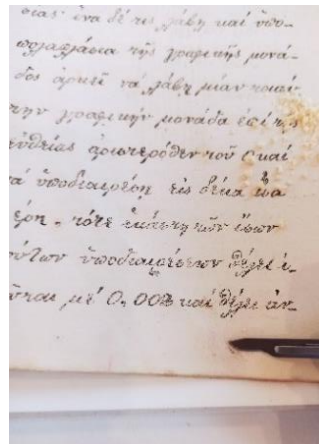 σιας· ἵνα δέ τις λάβῃ καὶ ὑπο-
πολλαπλάσια τῆς γραφικῆς μονά-
δος ἀρκεῖ νὰ λάβῃ μίαν τοιαύ-
την γραφικὴν μονάδα ἐπὶ τῆς
εὐθείας ἀριστερόθεν τοῦ 0 καὶ
νὰ ὑποδιαιρέσῃ εἰς δέκα ἴσα
μέρη. τότε ἑκάστη τῶν ἴσων
τούτων ὑποδιαιρέσεων θέλει
μὲ 0,002 καὶ θέλει ἀν-